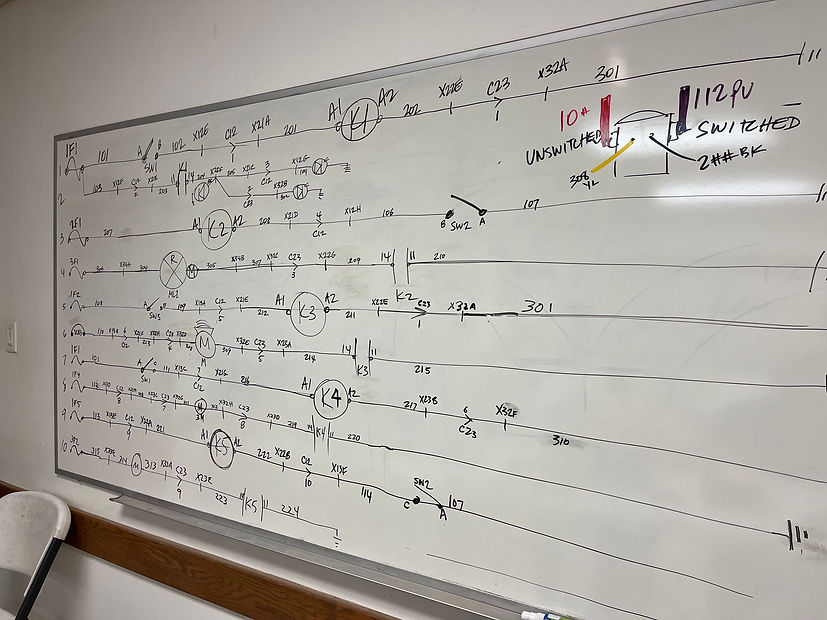 1 1F1 101 A SW1 B 102 X12E C12 1 X21A 201 A1 K1 A2 202 X22E C23 1 X32A 301
2 103 X12F C12 2 X21B 203 11 K1 14 204 X22F X21C 3 C12 X12G 104
10# UNSWITCHED
112 PU SWITCHED
308 YL
2## BK
3 2F1 207 A1 K2 A2 208 X21D 4 C12 X12H 106 B SW2 A 107
4 3F1 X34A 306 R ML1 M 305 X34B 307 X32C C23 3 X22G 209 14 11 K2 210
5 1F2 108 A SW3 109 X13A C12 5 X21E 212 A1 K3 A2 211 X22E C23 1 X32A 301
6 110 X13B 6 C12 213 4 M M 309 X32E C23 5 X23A 214 14 K3 11 215
7 1F1 101 A SW1 C 111 X13C 7 C12 X21G 216 A1 K4 A2 217 X23B 6 C23 X32F 310
8 1F4 112 X13D C12 8 C23 7 M X32H C23 8 X23D 219 14 K4 11 220
9 1F5 113 X13E C12 9 X22A 221 A1 K5 A2 222 X22B C12 10 X13F 114 C SW2 A 107
10 3F2 315 314 M 313 X33A C23 9 X23E 223 14 K5 11 224